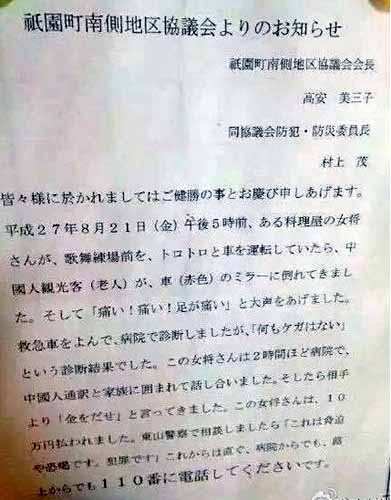 祇園町南側地区協議会よりのお知らせ
祇園町南側地区協議会会長
高安 美三子
同協議会防犯・防災委員長
村上 茂
皆々様に於かれましてはご健勝の事とお慶び申しあげます。
平成27年8月21日(金)午後5時前、ある料理屋の女将
さんが、歌舞練場前を、トロトロと車を運転していたら、中
國人観光客(老人)が、車(赤色)のミラーに倒れてきまし
た。そして「痛い!痛い!足が痛い」と大声をあげました。
救急車をよんで、病院で診断しましたが、「何もケガはない」
という診断結果でした。この女将さんは2時間ほど病院で、
中國人通訳と家族に囲まれて話し合いました。そしたら相手
より「金をだせ」と言ってきました。この女将さんは、10
万円払われました。東山警察で相談しましたら「これは脅迫
や恐喝です。犯罪です」これからは直ぐ、病院からでも、路
上からでも110番に電話してくださいです。